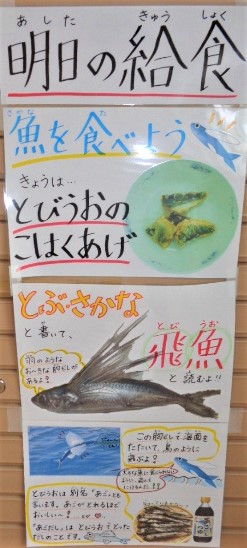 あした きゅう しょく
明日の給食
さかな た
魚を食べよう
きょうは…
とびうおの
こはくあげ
とぶ・さかな
と書いて、
とび うお
飛魚
と読むよ!!
羽のような
おーきな胸びれが
あるよ?
この胸びれで海面を
たたいて、鳥のように
飛ぶよ。
とびうおは別名「あご」とも
いいます。あごがとれるほど
おいしい〜!
「あごだし」は、とびうおでとった
だしのことです。